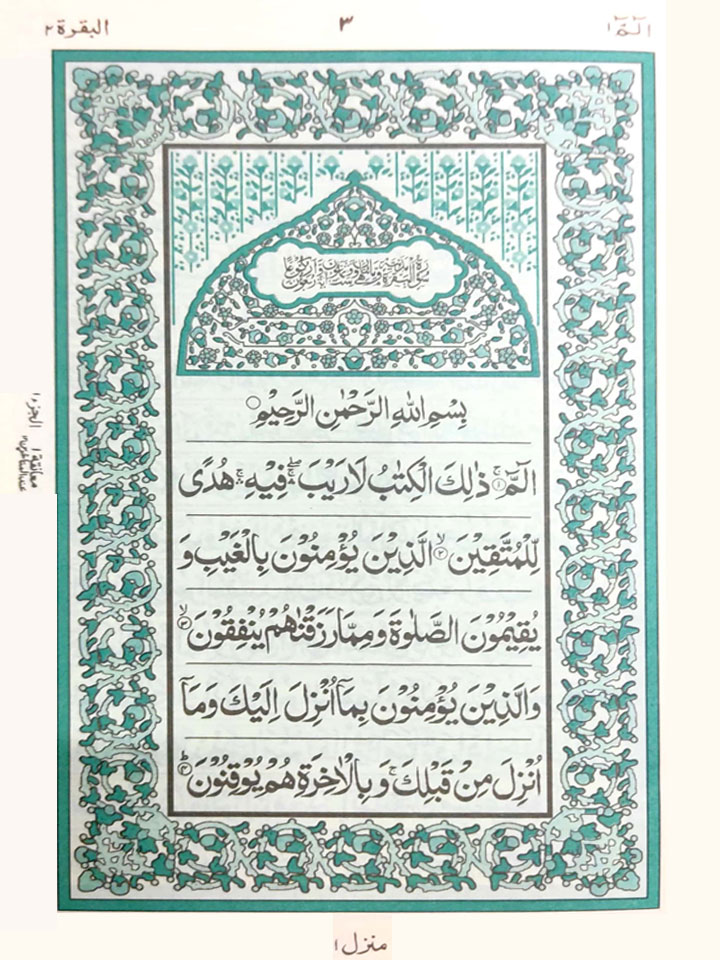 الٓمّٓ ١
٣
البقرة ٢
سُوْرَةُ الْبَقَرَةِ مَدَنِيَّةٌ وَهِىَ
بِسْمِ اللهِ الرَّحْمٰنِ الرَّحِيْمِ ○
الٓمّٓ ۚ﴿۱﴾ ذٰلِكَ الْكِتٰبُ لَا رَيْبَ ۛۖ فِيْهِ ۛۚ هُدًى
لِّلْمُتَّقِيْنَ ۙ﴿۲﴾ الَّذِيْنَ يُؤْمِنُوْنَ بِالْغَيْبِ وَ
يُقِيْمُوْنَ الصَّلٰوةَ وَ مِمَّا رَزَقْنٰهُمْ يُنْفِقُوْنَ ۙ﴿۳﴾
وَالَّذِيْنَ يُؤْمِنُوْنَ بِمَاۤ اُنْزِلَ اِلَيْكَ وَمَاۤ
اُنْزِلَ مِنْ قَبْلِكَ ۚ وَ بِالْاٰخِرَةِ هُمْ يُوْقِنُوْنَ ؕ﴿۴﴾
الجزء ١
معانقة ١
عند المتاخرين
منزل ١